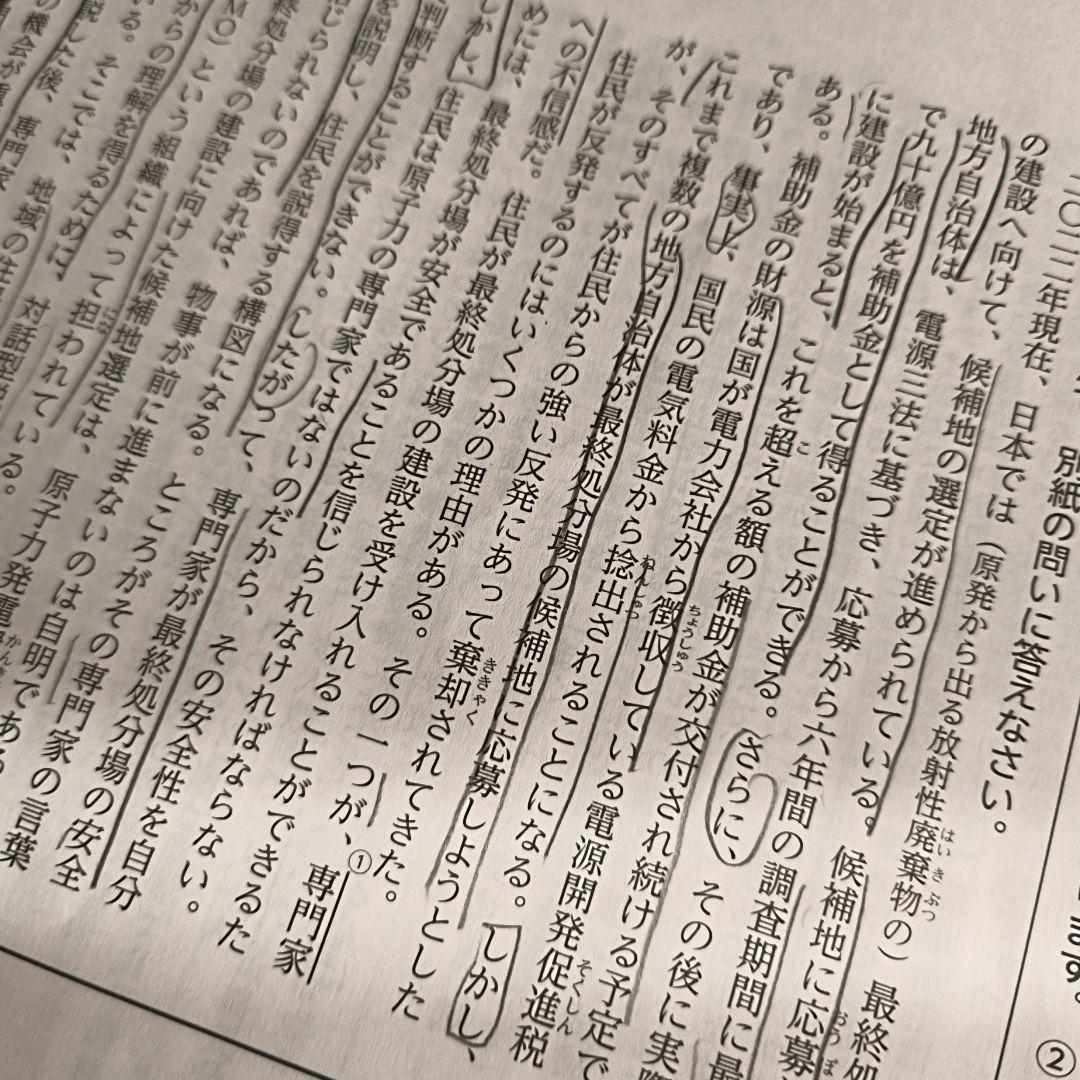 ます。
②
別紙の問いに答えなさい。
二〇二二年現在、日本では（原発から出る放射性廃棄物の）最終処
の建設へ向けて、候補地の選定が進められている。候補地に応募
地方自治体は、電源三法に基づき、応募から六年間の調査期間に最
で九十億円を補助金として得ることができる。さらに、その後に実際
に建設が始まると、これを超える額の補助金が交付され続ける予定で
ある。補助金の財源は国が電力会社から徴収している電源開発促進税
であり、事実上、国民の電気料金から捻出されることになる。しかし、
これまで複数の地方自治体が最終処分場の候補地に応募しようとした
が、そのすべてが住民からの強い反発にあって棄却されてきた。
住民が反発するのにはいくつかの理由がある。その一つが、①専門家
への不信感だ。住民が最終処分場の建設を受け入れることができるた
めには、最終処分場が安全であることを信じられなければならない。
しかし、住民は原子力の専門家ではないのだから、その安全性を自分
判断することができない。したがって、専門家が最終処分場の安全
を説明し、住民を説得する構図になる。ところがその専門家の言葉
信じられないのであれば、物事が前に進まないのは自明である
終処分場の建設に向けた候補地選定は、原子力発電
MO）という組織によって担われている。
からの理解を得るために、対話型
いる。そこでは、地域の住
説した後、専門家
の機会が